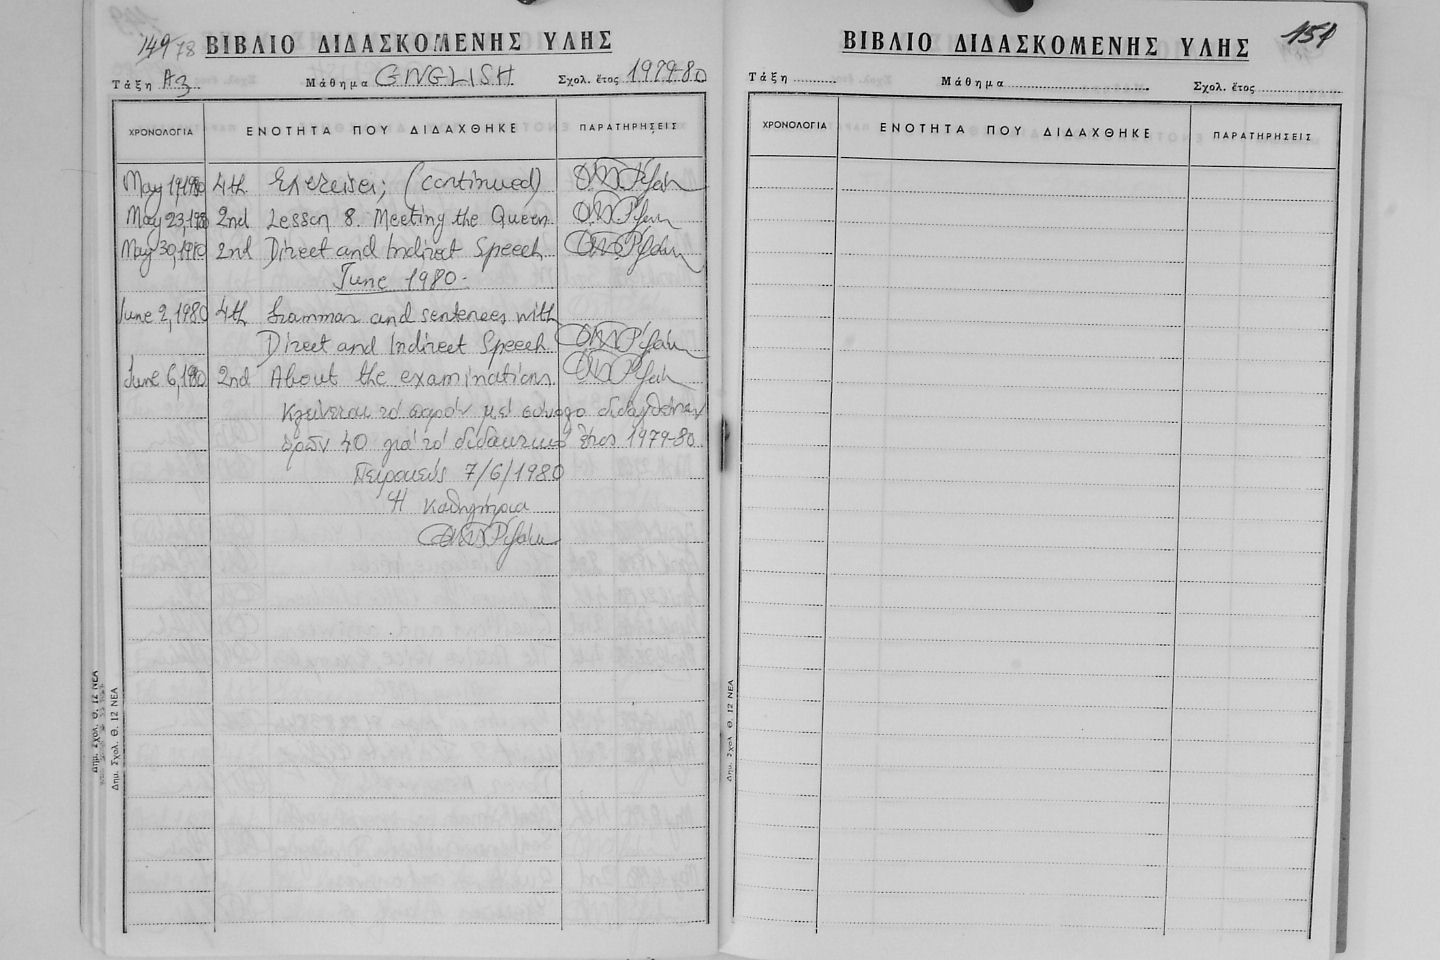 149/78 ΒΙΒΛΙΟ ΔΙΔΑΣΚΟΜΕΝΗΣ ΥΛΗΣ
Τάξη Α3 Μάθημα ENGLISH Σχολ. ἔτος 1979-80
ΧΡΟΝΟΛΟΓΙΑ ΕΝΟΤΗΤΑ ΠΟΥ ΔΙΔΑΧΘΗΚΕ ΠΑΡΑΤΗΡΗΣΕΙΣ
May 19,1980 4th Exercises; (continued)
May 23,1980 2nd Lesson 8. Meeting the Queen.
May 30,1980 2nd Direct and Indirect Speech
June 1980.
June 2,1980 4th Grammar and sentences with
Direct and Indirect Speech.
June 6,1980 2nd About the examinations
Κλείνεται τό παρόν μέ σύνολο διδαχθεισῶν
ὡρῶν 40 γιά τό διδακτικό ἔτος 1979-80.
Πειραιεύς 7/6/1980
Ἡ καθηγήτρια
Δημ. Σχολ. Θ. 12 ΝΕΑ
Δημ. Σχολ. Θ. 12 ΝΕΑ
151
ΒΙΒΛΙΟ ΔΙΔΑΣΚΟΜΕΝΗΣ ΥΛΗΣ
Τάξη Μάθημα Σχολ. ἔτος
ΧΡΟΝΟΛΟΓΙΑ ΕΝΟΤΗΤΑ ΠΟΥ ΔΙΔΑΧΘΗΚΕ ΠΑΡΑΤΗΡΗΣΕΙΣ
Δημ. Σχολ. Θ. 12 ΝΕΑ